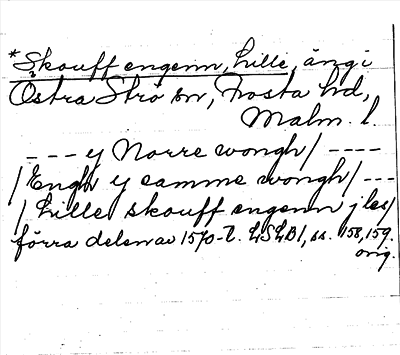 *Skouff engenn, hille, äng i
Östra Strö sn, Frosta hd,
Malm. l.
- - - y Norre wongh / - - - -
/ Engh y samme wongh / - - -
/ hille skouff engenn j les /
förra delen av 1570-t. LSLB 1, ss. 158, 159.
orig.